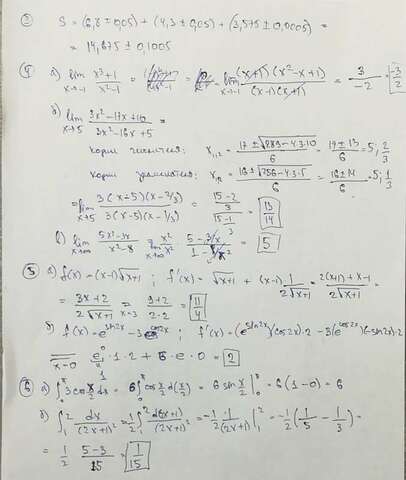 ③ S = (6,8 ± 0,05) + (4,3 ± 0,05) + (3,575 ± 0,0005) =
= 14,675 ± 0,1005
④ а) lim x→-1 (x³+1)/(x²-1) = lim x→-1 ((x+1)(x²-x+1))/((x-1)(x+1)) = 3/-2 = -3/2
б) lim x→5 (3x²-17x+10)/(3x²-16x+5) =
корни числителя: x₁,₂ = (17 ± √(289-4·3·10))/6 = (17±13)/6 = 5; 2/3
корни знаменателя: x₁,₂ = (16 ± √(256-4·3·5))/6 = (16±14)/6 = 5; 1/3
= lim x→5 (3(x-5)(x-2/3))/(3(x-5)(x-1/3)) = (15-2)/3 / (15-1)/3 = 13/14
в) lim x→∞ (5x²-3x)/(x²-8) lim x→∞ x²/x² (5-3/x)/(1-8/x²) = 5
⑤ а) f(x) = (x-1)√(x+1) ; f'(x) = √(x+1) + (x-1) 1/(2√(x+1)) = (2(x+1)+x-1)/(2√(x+1)) =
= (3x+2)/(2√(x+1)) = x=3 (9+2)/(2·2) = 11/4
б) f(x) = e^(sin2x) - 3e^(cos2x) ; f'(x) = (e^(sin2x))(cos2x)·2 - 3(e^(cos2x))(-sin2x)·2
= x=0 e⁰·1·2 + 6·e·0 = 2
⑥ а) ∫ 3cos x/2 dx = 6∫ cos x/2 d(x/2) = 6 sin x/2 | = 6(1-0) = 6
б) ∫₁² dx/(2x+1)² = 1/2 ∫₁² d(2x+1)/(2x+1)² = -1/2 · 1/(2x+1) |₁² = -1/2 (1/5 - 1/3) =
= 1/2 (5-3)/15 = 1/15